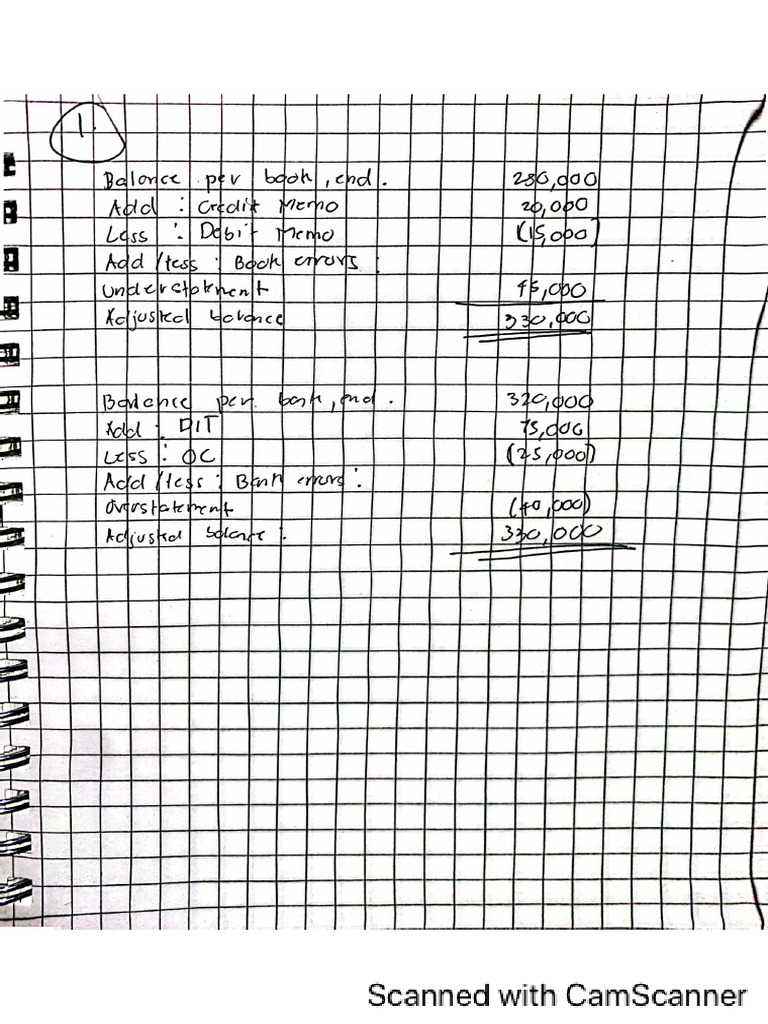 1.
Balance per book, end. 280,000
Add : Credit Memo 20,000
Less : Debit Memo (15,000)
Add /less : Book errors :
Understatement 45,000
Adjusted balance 330,000
Balance per bank, end. 320,000
Add : DIT 75,000
Less : OC (25,000)
Add /less : Bank errors :
Overstatement (40,000)
Adjusted balance : 330,000
Scanned with CamScanner